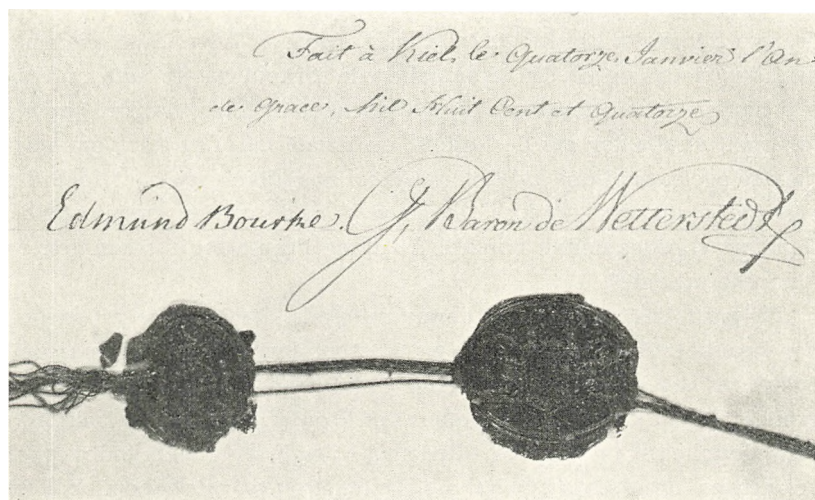 Fait à Kiel, le Quatorze Janvier l'An
de Grace, Mil Huit Cent et Quatorze
Edmund Bourke. G, Baron de Wetterstedt